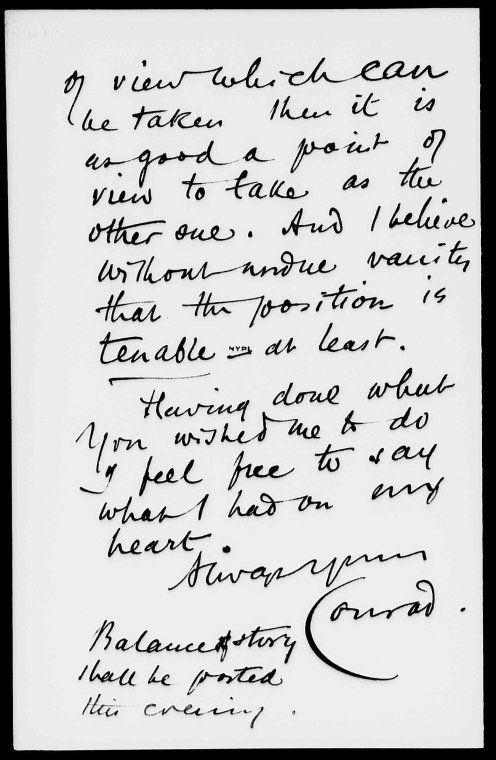 of view which can
be taken then it is
as good a point of
view to take as the
other one. And I believe
without undue vanity
that the position is
tenable NYPL at least.
Having done what
you wished me to do
I feel free to say
what I had on my
heart.
Always yours
Conrad.
Balance of story
shall be posted
this evening.